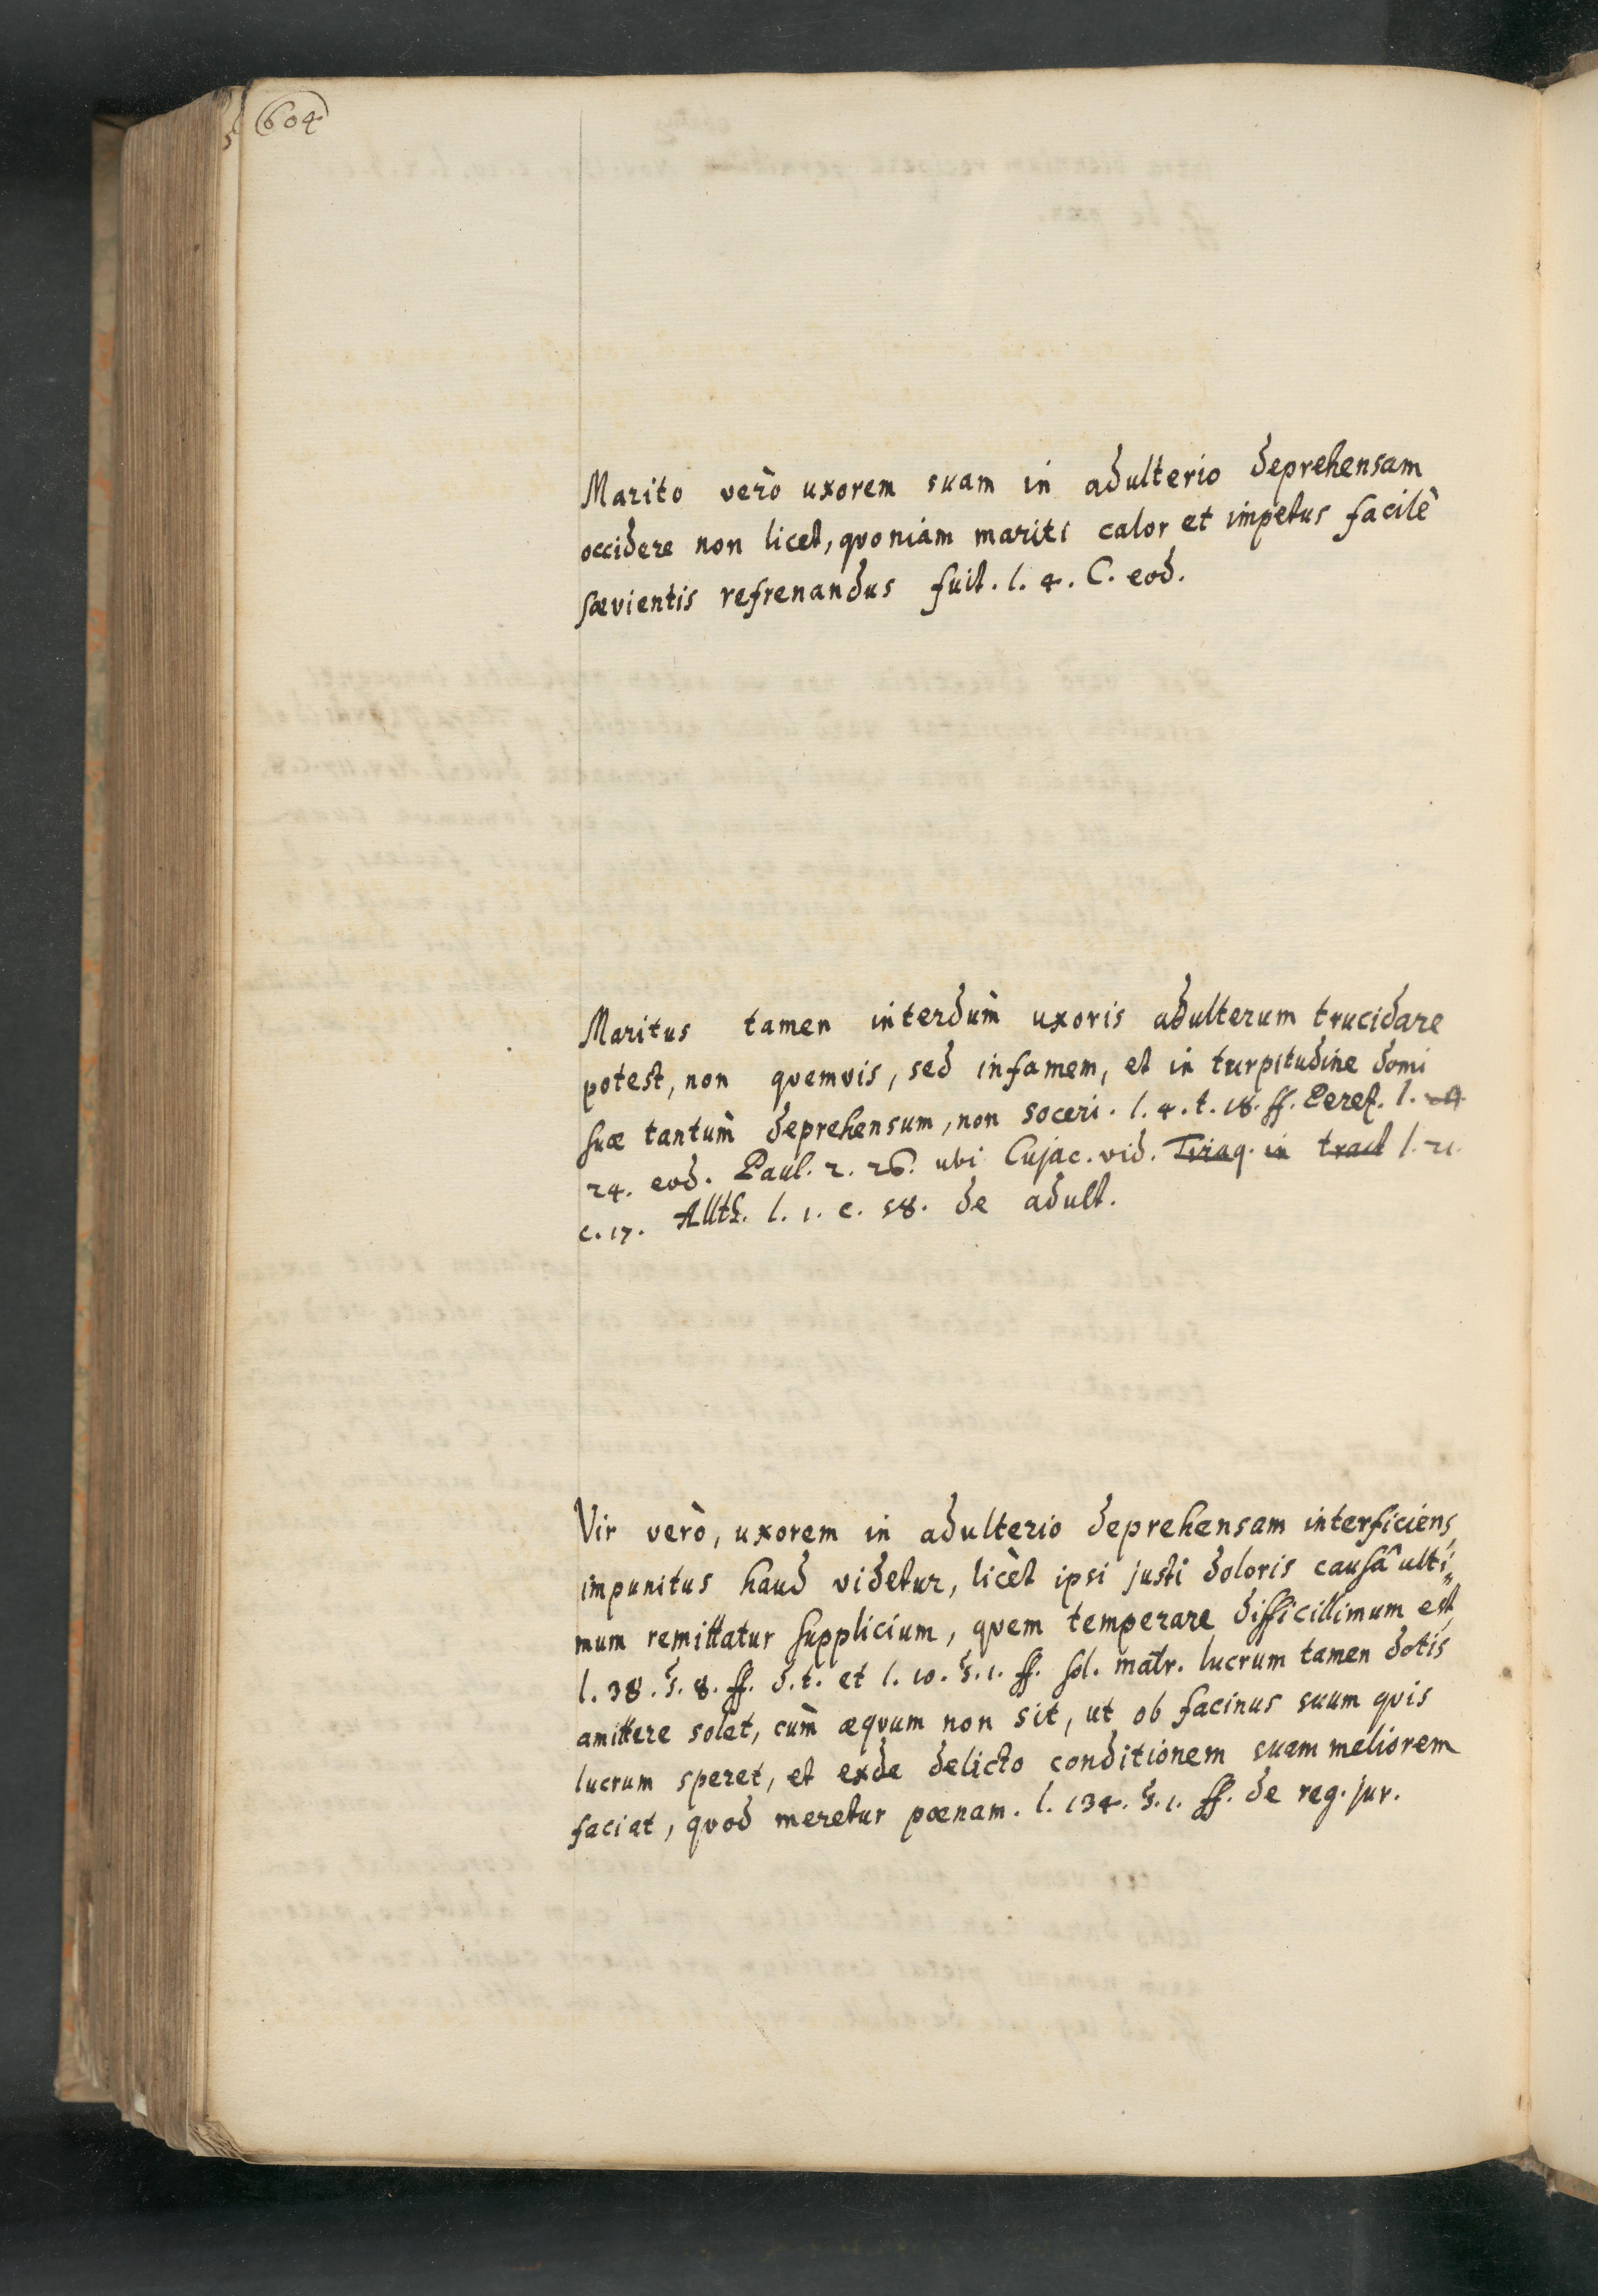 604
Marito verò uxorem suam in adulterio deprehensam
occidere non licet, quoniam mariti calor et impetus facilè
sævientis refrenandus fuit. l. 4. C. eod.
Maritus tamen interdùm uxoris adulterum trucidare
potest, non quemvis, sed infamem, et in turpitudine domi
suæ tantùm deprehensum, non soceri. l. 4. t. 18. ff. Perez. l.
24. eod. Paul. 2. 26. ubi Cujac. vid. Tiraq. in tract l. 21.
c. 17. Alth. l. 1. c. 58. de adult.
Vir verò, uxorem in adulterio deprehensam interficiens,
impunitus haud videtur, licèt ipsi justi doloris causâ ulti„
mum remittatur supplicium, quem temperare difficillimum est,
l. 38. §. 8. ff. d. t. et l. 10. §. 1. ff. sol. matr. lucrum tamen dotis
amittere solet, cùm æquum non sit, ut ob facinus suum quis
lucrum speret, et exde delicto conditionem suam meliorem
faciat, quod meretur pœnam. l. 134. §. 1. ff. de reg. jur.